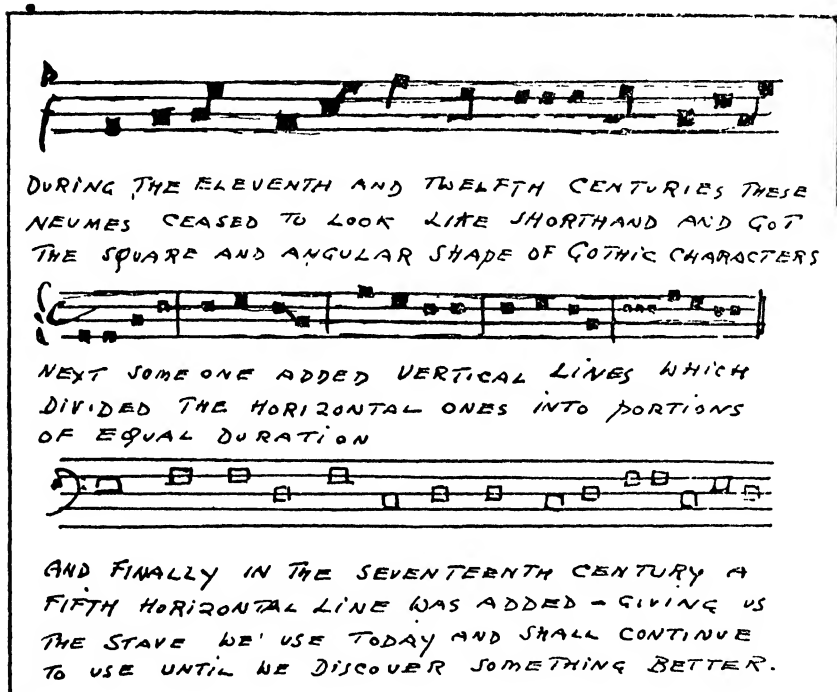 DURING THE ELEVENTH AND TWELFTH CENTURIES THESE
NEUMES CEASED TO LOOK LIKE SHORTHAND AND GOT
THE SQUARE AND ANGULAR SHAPE OF GOTHIC CHARACTERS
NEXT SOME ONE ADDED VERTICAL LINES WHICH
DIVIDED THE HORIZONTAL ONES INTO PORTIONS
OF EQUAL DURATION
AND FINALLY IN THE SEVENTEENTH CENTURY A
FIFTH HORIZONTAL LINE WAS ADDED - GIVING US
THE STAVE WE USE TODAY AND SHALL CONTINUE
TO USE UNTIL WE DISCOVER SOMETHING BETTER.